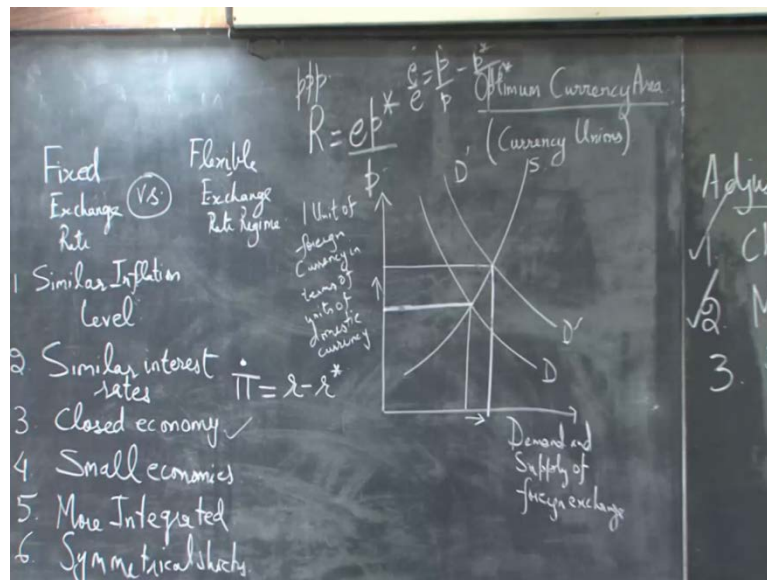 ppp
ė/e = ṗ/p - ṗ*/p*
R = ep*/p
Optimum Currency Area
(Currency Unions)
Fixed
Exchange
Rate
Vs.
Flexible
Exchange
Rate Regime
1 Similar Inflation
Level
2. Similar interest
rates
π̇ = r - r*
3. Closed economy ✓
4 Small economies
5. More Integrated
6. Symmetrical shocks
1 Unit of
foreign
Currency in
terms of
units of
domestic
currency
D'
S
D'
D
Demand and
Supply of
foreign exchange
Adjus
✓ 1. Ch
✓ 2. M
3.